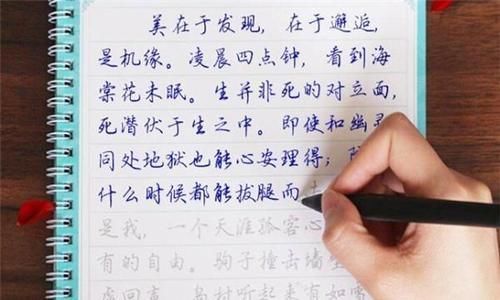 美在于发现，在于邂逅，
是机缘。凌晨四点钟，看到海
棠花未眠。生并非死的对立面，
死潜伏于生之中。即使和幽灵
同处地狱也能心安理得；
什么时候都能拔腿而
是我，一个天涯孤客心
有的自由。驹子撞击墙壁
虚回声，岛村听起来有如雪